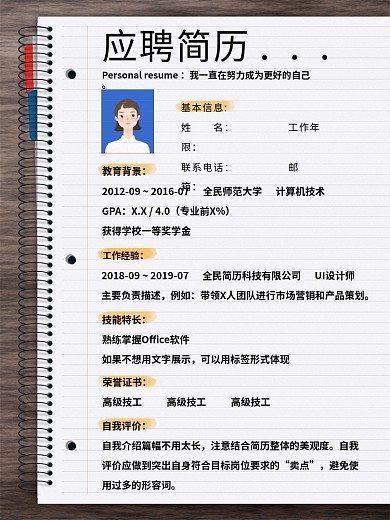 应聘简历...
Personal resume：我一直在努力成为更好的自己
。
基本信息：
姓　　名：　　　　　　工作年
限：
联系电话：　　　　　　邮
箱：
教育背景：
2012-09 ~ 2016-07　全民师范大学　计算机技术
GPA：X.X / 4.0（专业前X%）
获得学校一等奖学金
工作经验：
2018-09 ~ 2019-07　全民简历科技有限公司　UI设计师
主要负责描述，例如：带领X人团队进行市场营销和产品策划。
技能特长：
熟练掌握Office软件
如果不想用文字展示，可以用标签形式体现
荣誉证书：
高级技工　　高级技工　　高级技工
自我评价：
自我介绍篇幅不用太长，注意结合简历整体的美观度。自我
评价应做到突出自身符合目标岗位要求的“卖点”，避免使
用过多的形容词。